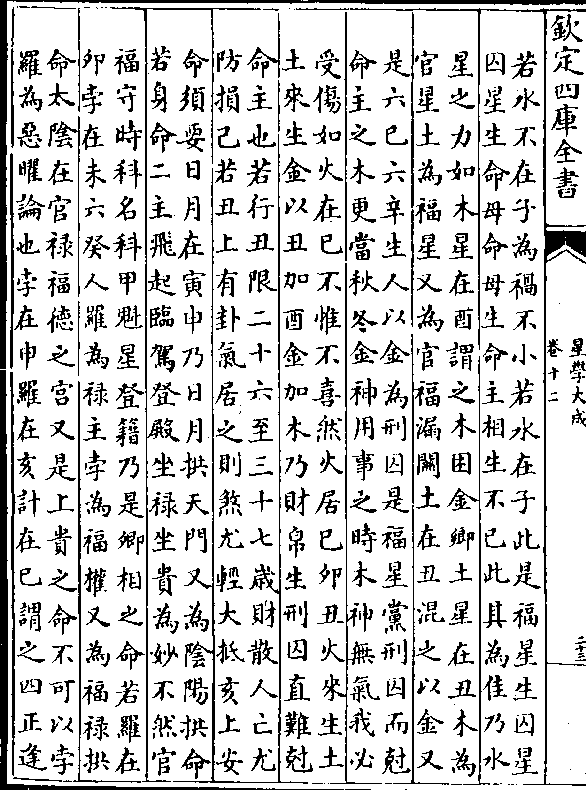 欽定四庫全書
星學大成
卷十二
二十三
若水不在子為禍不小若水在子此是福星生囚星
囚星生命母命母生命主相生不已此其為佳乃水
星之力如木星在酉謂之木困金鄉土星在丑木為
官星土為福星又為官福漏關土在丑混之以金又
是六巳六辛生人以金為刑囚是福星黨刑囚而尅
命主之木更當秋冬金神用事之時木神無氣我必
受傷如火在巳不惟不喜然火居巳卯丑火來生土
土來生金以丑加酉金加木乃財帛生刑囚直難尅
命主也若行丑限二十六至三十七歳財散人亡尤
防損己若丑上有卦氣居之則煞尤輕大抵亥上安
命須要日月在寅申乃日月拱天門又為陰陽拱命
若身命二主飛起臨駕登殿坐禄坐貴為妙不然官
福守時科名科甲魁星登籍乃是卿相之命若羅在
卯孛在未六癸人羅為禄主孛為福權又為福禄拱
命太陰在官禄福德之宮又是上貴之命不可以孛
羅為惡曜論也孛在申羅在亥計在巳謂之四正逢